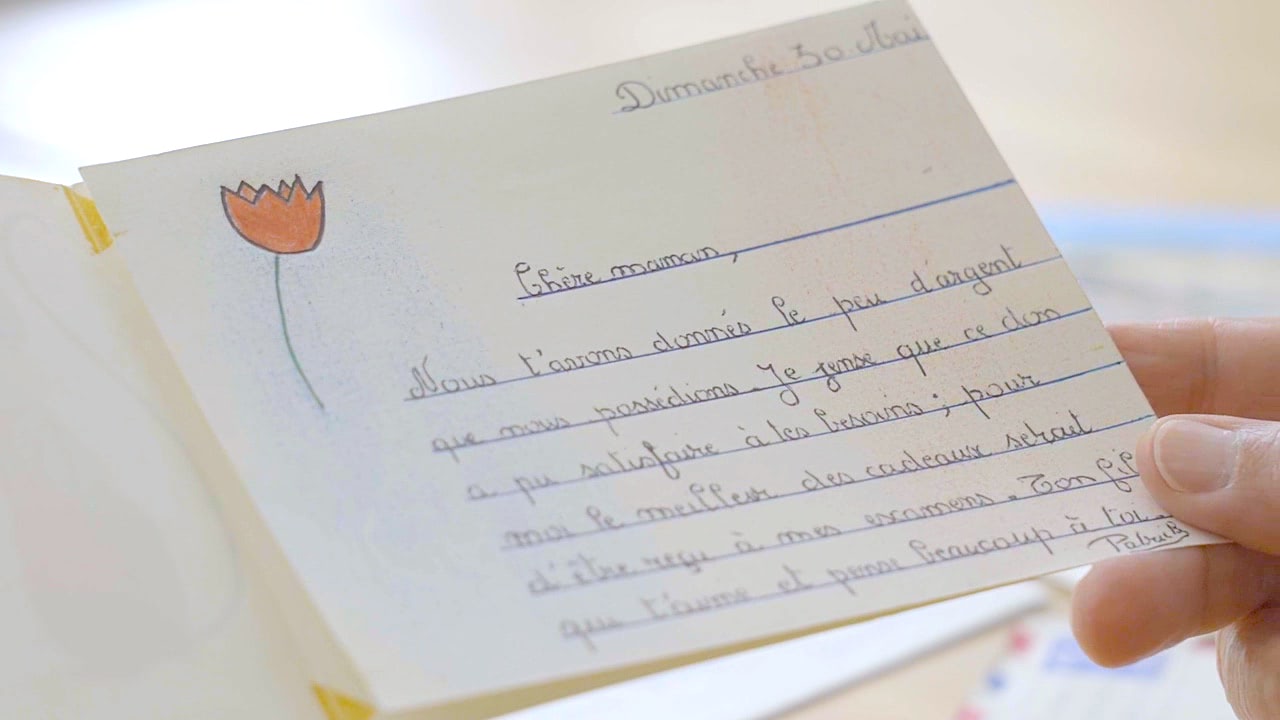 Dimanche 30 Mai
Chère maman,
Nous t'avons donnés le peu d'argent
que nous possédions. Je pense que ce don
a pu satisfaire à tes besoins; pour
moi le meilleur des cadeaux serait
d'être reçu à mes examens. Ton fil
qui t'aime et pense beaucoup à toi.
Patrick